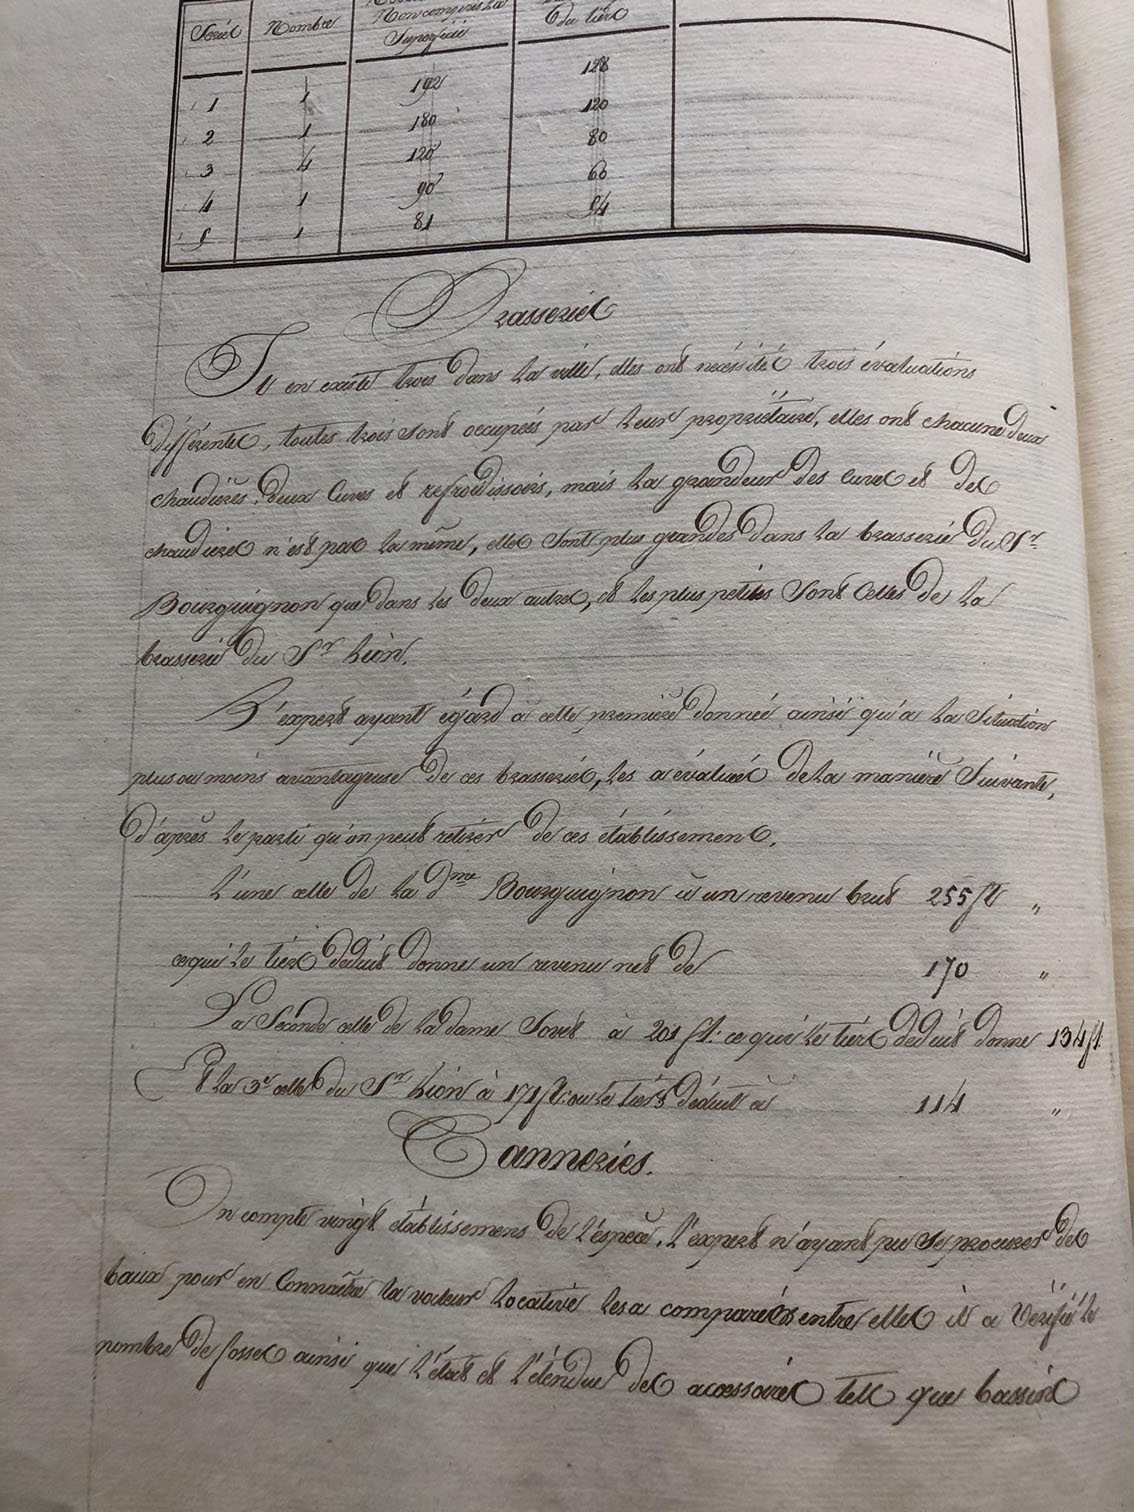 Séries Nombre Non compris la Superficie du tiers
1 1 192 128
2 1 180 120
3 4 120 80
4 1 90 60
5 1 81 54
Brasseries
Il en existe trois dans la ville, elles ont nécessité trois évaluations
différentes, toutes trois sont occupées par leur propriétaire, elles ont chacune deux
chaudières, deux cuves et refroidissoirs, mais la grandeur des cuves et des
chaudières n'est pas la même, elles sont plus grandes dans la brasserie du Sr
Bourguignon que dans les deux autres, et les plus petites sont celles de la
brasserie du Sr Lion.
L'expert ayant égard à cette première donnée ainsi qu'a la situation
plus ou moins avantageuse de ces brasseries, les a évalués de la manière suivante,
d'après le parti qu'on peut retirer de ces établissemens.
L'une celle de la dme Bourguignon à un revenu brut 255 ft "
ce qui le tiers déduit donne un revenu net de 170 "
La Seconde celle de la dame à 201 ft. ce qui le tiers déduit donne 134 ft
Et la 3e celle du Sr Lion à 171 ft. ou le tiers déduit à 114 "
Tanneries.
On compte vingt établissemens de l'espèce. L'expert n'ayant pu se procurer des
baux pour en connaître la valeur locative les a comparés entre elles il a vérifié le
nombre de fosses ainsi que l'état et l'étendue des accessoires tels que bassins